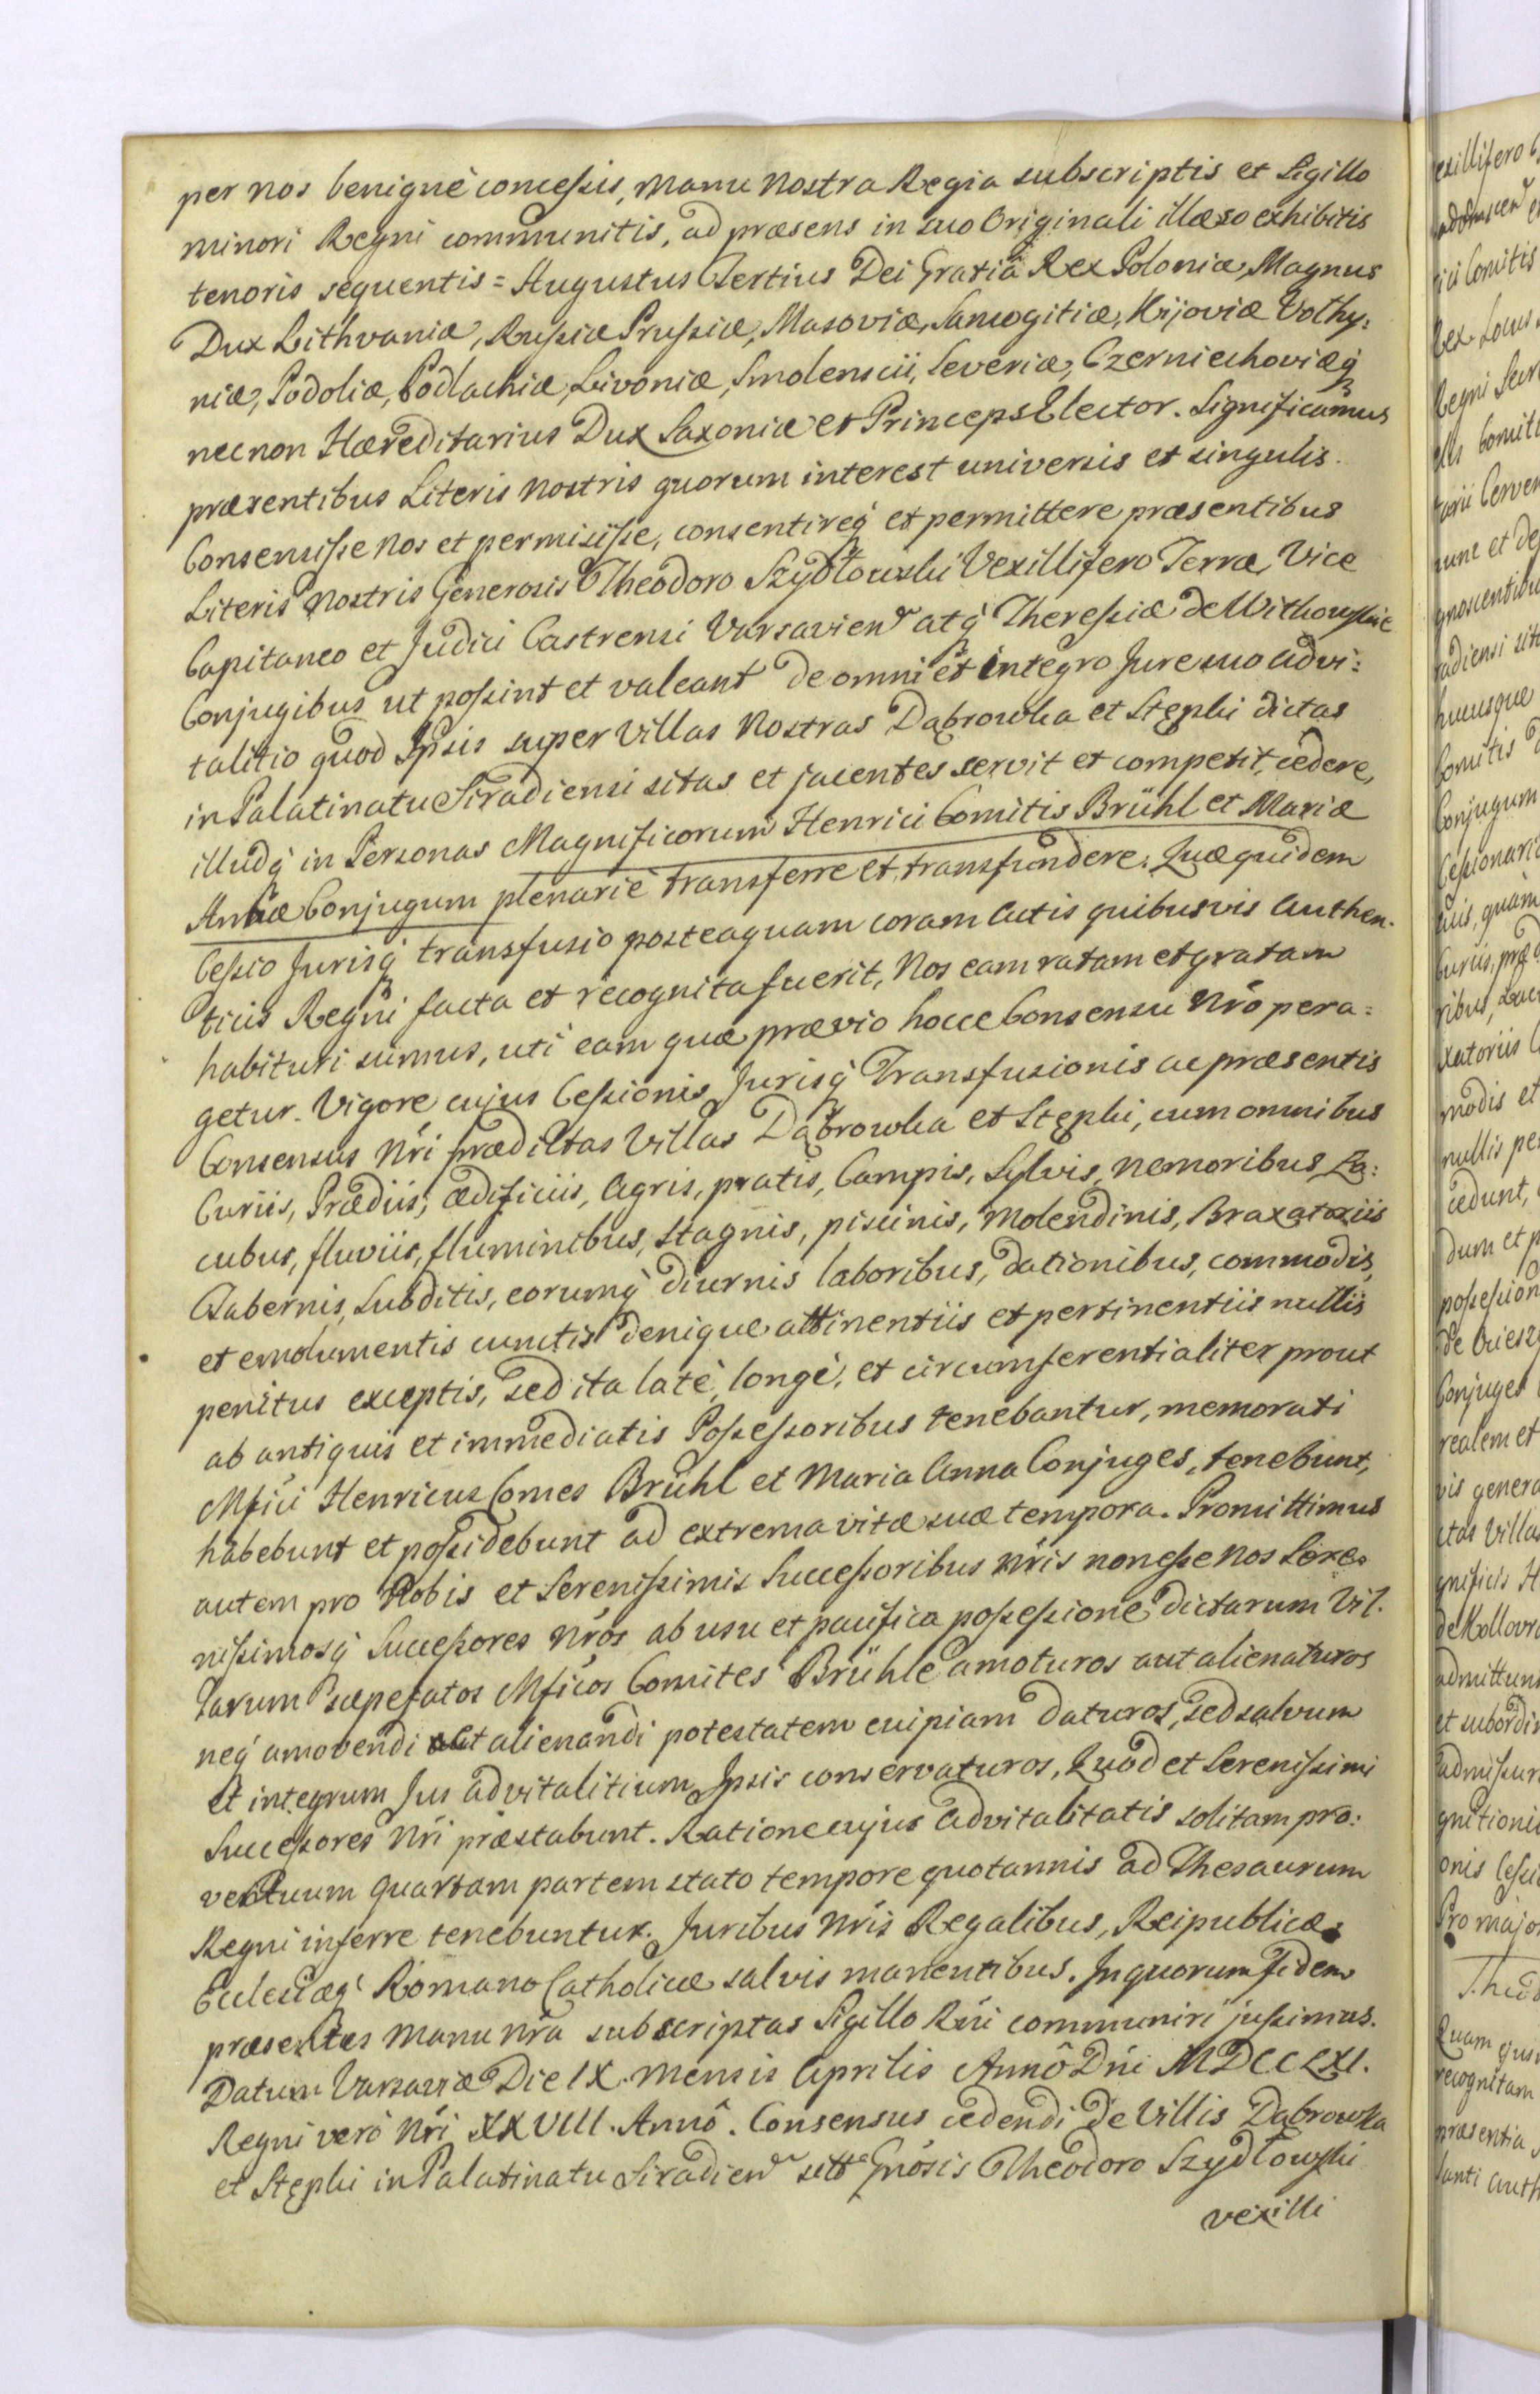 per nos benignè concessis, manu nostra Regia subscriptis et Sigillo
minori Regni communitis, ad præsens in suo Originali illæso exhibitis
tenoris sequentis = Augustus Tertius Dei Gratiâ Rex Poloniæ, Magnus
Dux Lithvaniæ, Russiæ Prussiæ, Masoviæ, Samogitiæ, Kijoviæ Volhy:
niæ, Podoliæ, Podlachiæ, Livoniæ, Smolenscii, Severiæ, Czerniechoviæq
necnon Hæreditarius Dux Saxoniæ et Princeps Elector. Significamus
præsentibus Literis nostris quorum interest universis et singulis.
Consensisse nos et permisisse, consentireq et permittere præsentibus
Literis nostris Generosis Theodoro Szydłowski Vexillifero Terræ, Vice
Capitaneo et Judici Castrensi Varsavien atq Theressiæ de Witkowskie
Conjugibus ut possint et valeant de omni et integro Jure suo advi:
talitio quod Ipsis super Villas Nostras Dąbrowka et Stępki dictas
in Palatinatu Siradiensi sitas et jacentes servit et competit, cedere,
illudq in Personas Magnificorum Henrici Comitis Brühl et Mariæ
Annæ Conjugum plenariè transferre et transfundere. Quæ quidem
Cessio Jurisq transfusio posteaquam coram Actis quibusvis Authen-
ticis Regni facta et recognita fuerit, Nos eam ratam et gratam
habituri sumus, uti eam quæ prævio hocce Consensu Nrô pera:
getur. Vigore cujus Cessionis Jurisq Transfusionis ac præsentis
Consensus Nri prædictas Villas Dąbrowka et Stępki, cum omnibus
Curiis, Prædiis, ædificiis, Agris, pratis, Campis, Sylvis, nemoribus, La:
cubus, fluviis, fluminibus, stagnis, piscinis, Molendinis, Braxatoriis
Tabernis, Subditis, eorumq diurnis laboribus, dationibus, commodis,
et emolumentis cunctis denique attinentiis et pertinentiis nullis
penitus exceptis, sed ita latè, longè, et circumferentialiter prout
ab antiquis et immediatis Possessoribus tenebantur, memorati
Mfici Henricus Comes Brühl et Maria Anna Conjuges, tenebunt,
habebunt et possidebunt ad extrema vitæ suæ tempora. Promittimus
autem pro Nobis et Serenissimis Successoribus Nris non esse Nos Sere-
nissimosq Successores Nros ab usu et pacifica possessione dictarum Vil-
larum sæpefatos Mficos Comites Brühle amoturos aut alienaturos
neq amovendi aut alienandi potestatem cuipiam daturos, sed salvum
et integrum Jus advitalitium Ipsis conservaturos, Quod et Serenissimi
Successores Nri præstabunt. Ratione cujus advitalitatis solitam pro:
ventuum quartam partem stato tempore quotannis ad Thesaurum
Regni inferre tenebuntur. Juribus Nris Regalibus, Reipublicæ
Ecclesiæq Romano Catholicæ salvis manentibus. In quorum fidem
præsentes manu Nra subscriptas Sigillo Rni communiri jussimus.
Datum Varsaviæ Die IX. Mensis Aprilis Annô Dni MDCCLXI.
Regni verô Nri XXVIII. Annô. Consensus cedendi de Villis Dąbrowka
et Stępki in Palatinatu Siradien Gnosis Theodoro Szydłowski
vexilli